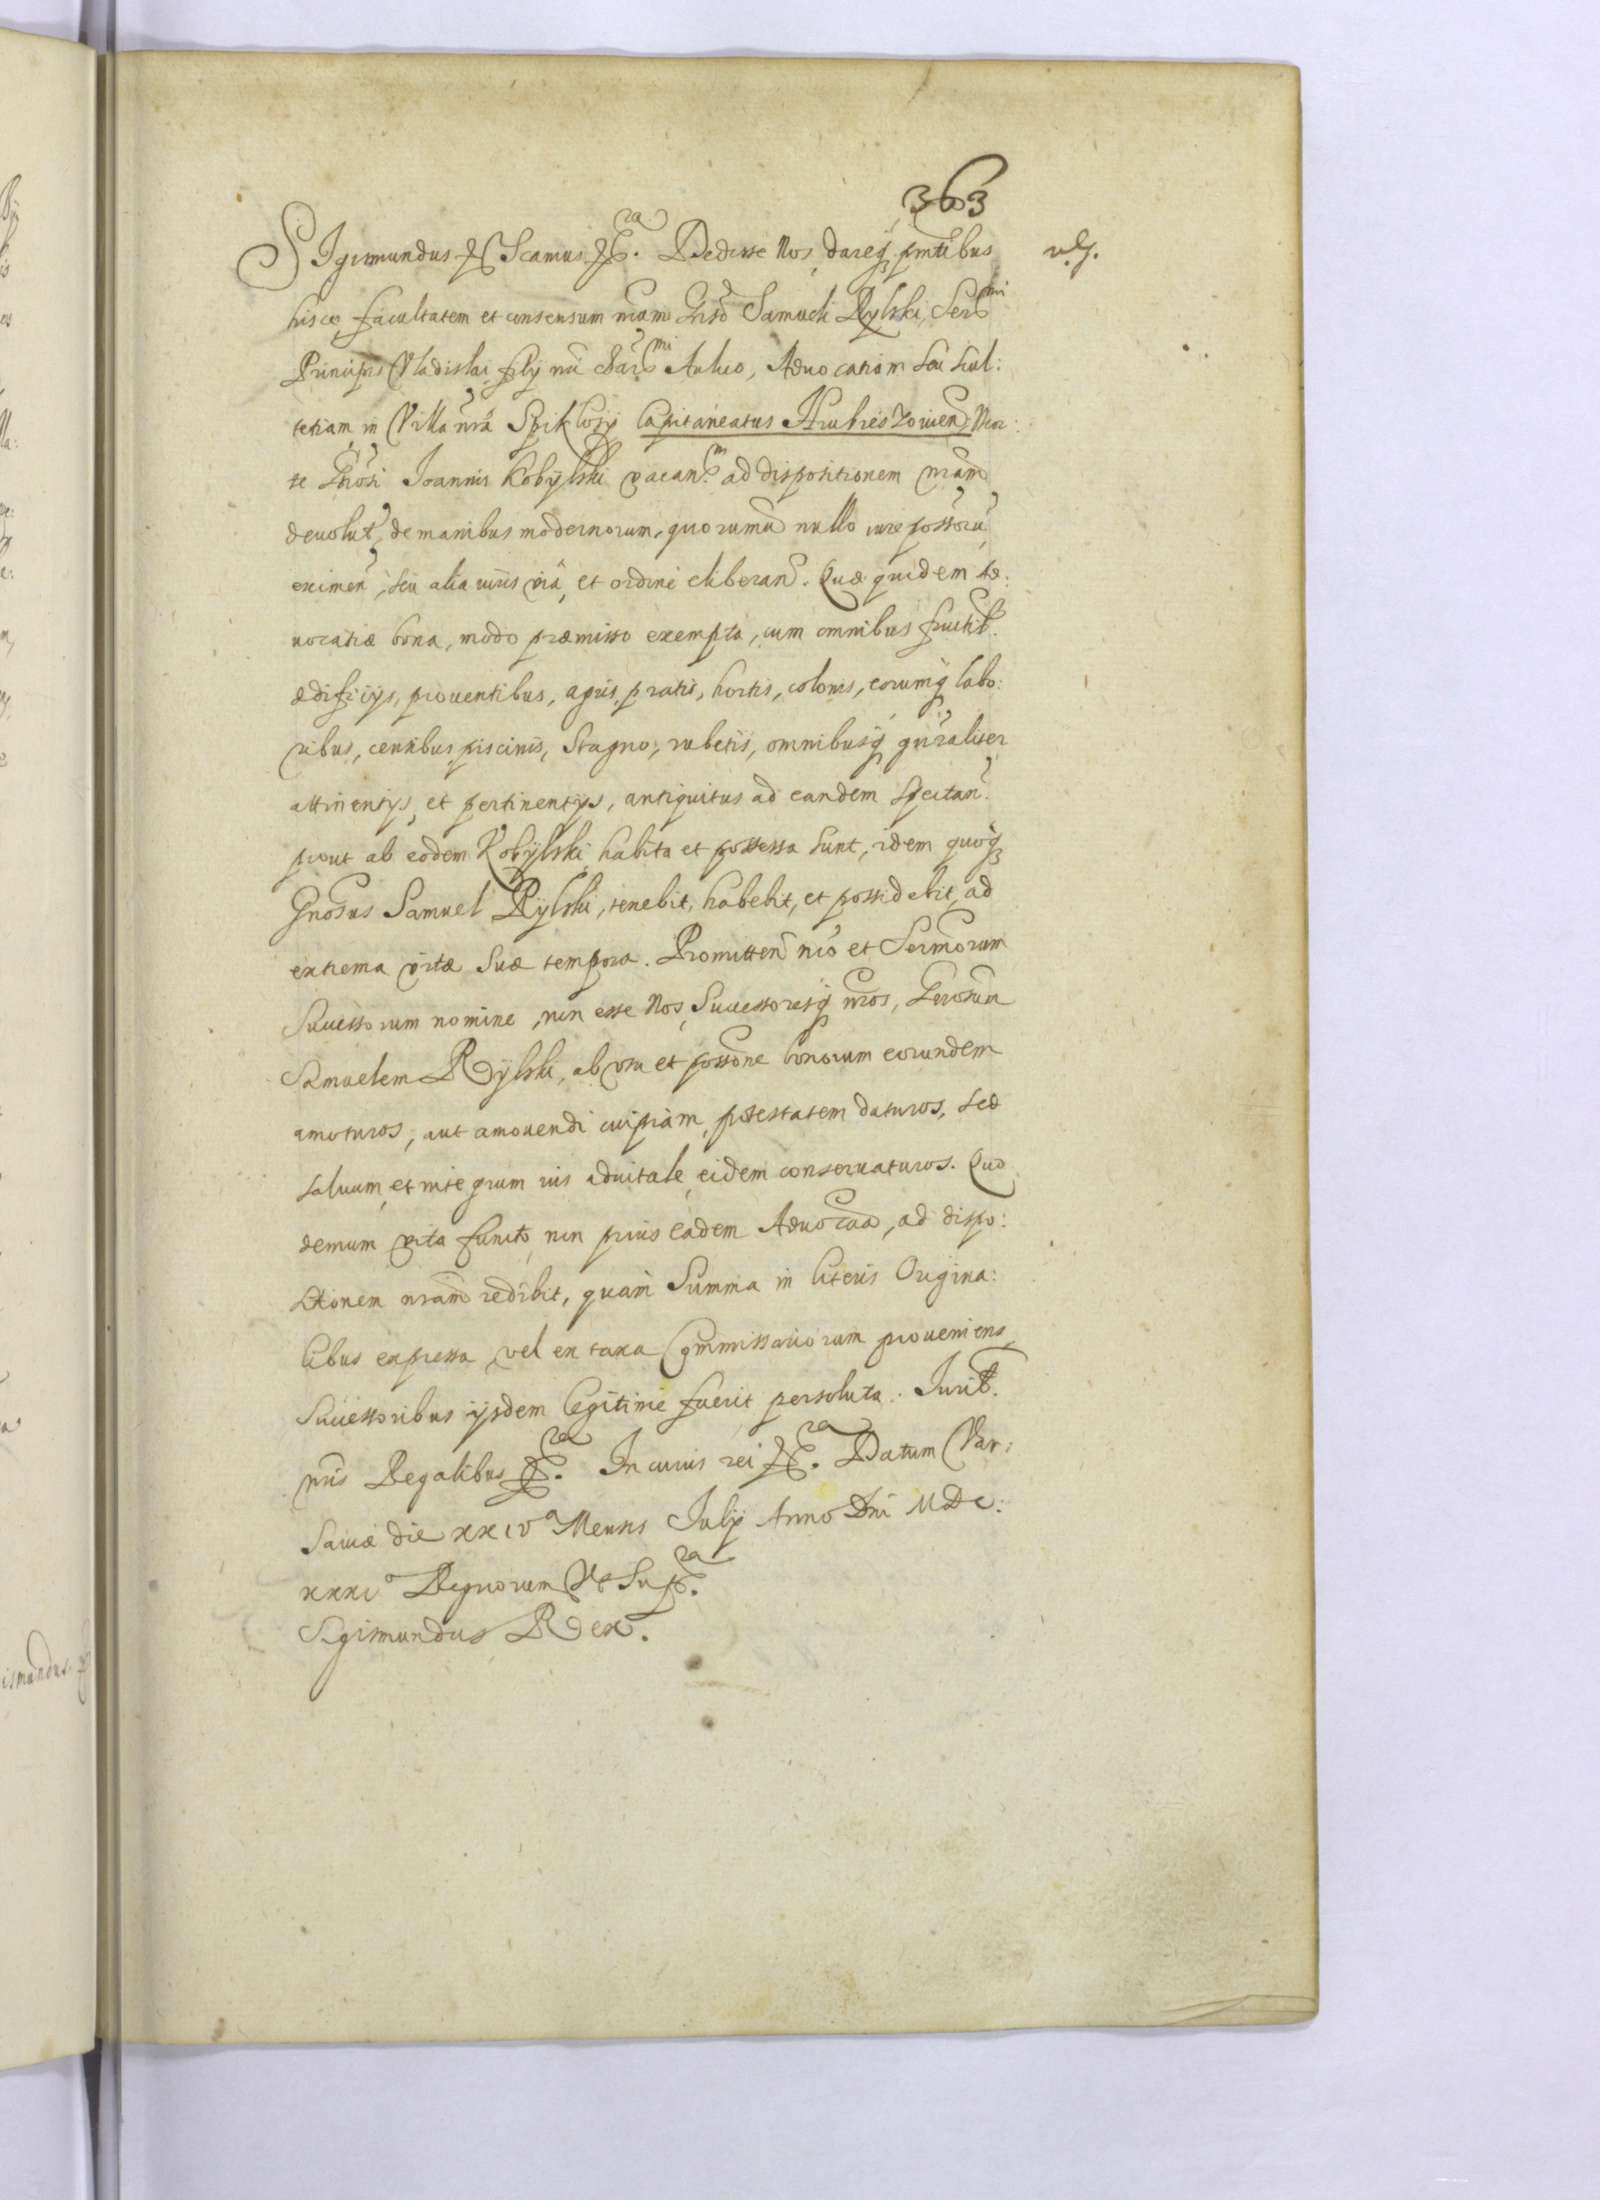 363
SIgismundus &c Scamus &c ra. Dedisse Nos, dareq₃ pñtibus v. G.
hisce facultatem et consensum nr̃am Gñso Samueli Rylski, Ser mi
Principis Vladislai filij nři Char mi Aulico, Aduocatiam seu scul:
tetiam in Villa nr̃a Spikłosy Capitaneatus Hrubieszouien̄ Mor:
te Gñosi Ioannis Kobylski vacan̄ m ad dispositionem nr̃am
deuolut̄, de manibus modernorum, quorumuis nullo iure possorũ
eximen̄, seu alia iuris via, et ordine eliberan̄. Quæ quidem Ad:
uocatiæ bona, modo præmisso exempta, cum omnibus fructib.
ædificijs, prouentibus, agris, pratis, hortis, colonis, eorumq₃ labo:
ribus, censibus, piscinis, Stagno, rubetis, omnibusq₃ gñraliter
attinentijs, et pertinentijs, antiquitus ad eandem spectan̄.
prout ab eodem Kobylski habita et possessa sunt, idem quoq₃
Gnosus Samuel Rylski, tenebit, habebit, et possidebit, ad
extrema vitæ suæ tempora. Promitten̄ nřo et Sermorum
Successorum nomine, non esse Nos, Successoresq₃ nr̃os, Gnosum
Samuelem Rylski, ab vsu et possõne bonorum eorundem
amoturos, aut amouendi cuipiam, potestatem daturos, sed
saluum et integrum ius aduitale eidem conseruaturos. Quo
demum vita functo, non prius eadem Aduocãa, ad dispo:
sitionem nr̃am redibit, quam Summa in literis Origina:
libus expressa, vel ex taxa Commissariorum proueniens
Successoribus ijsdem legitime fuerit persoluta. Iurib.
nr̃is Regalibus &c ra. In cuius rei &c ra. Datum Var:
sauiæ die xxiv a Mensis Iulij Anno Dni MDC:
xxxi o Regnorum Vt Sup ra.
Sigismundus Rex.